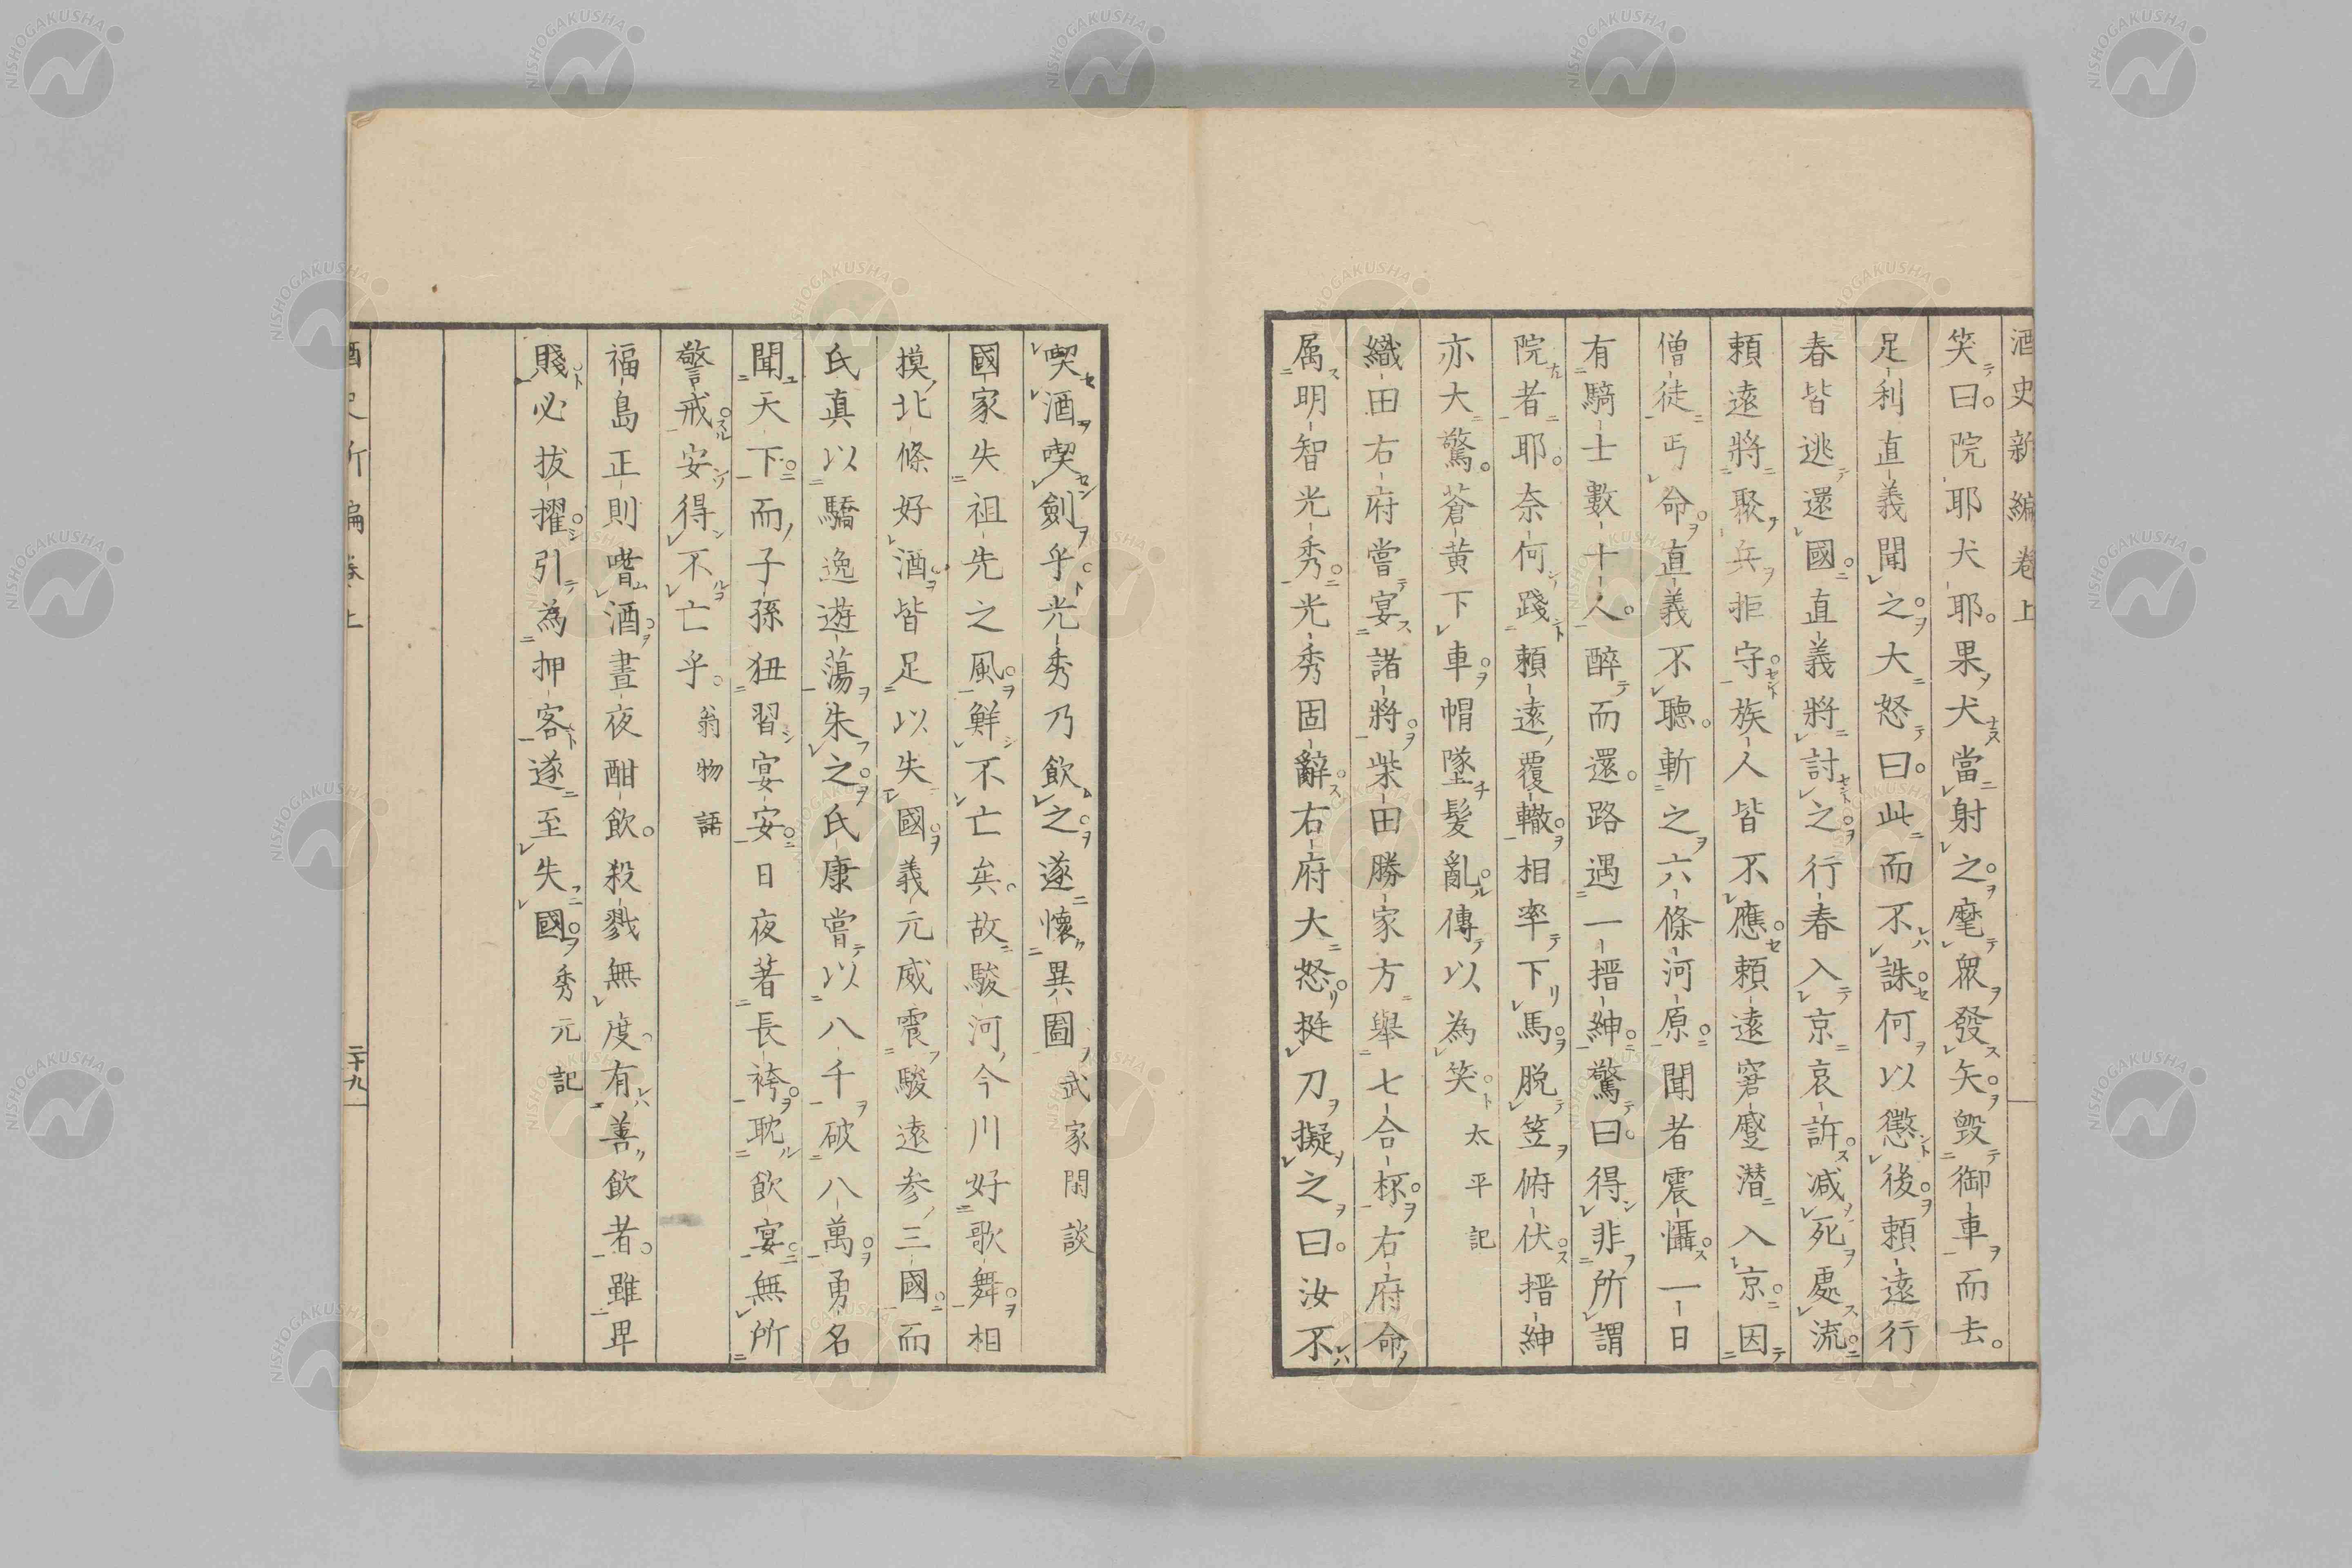 酒史新編卷上
笑曰。院耶犬耶。果犬當射之。麾衆發矢。毀御車而去。
足利直義聞之。大怒曰。此而不誅。何以懲後。頼遠行
春皆逃還國。直義將討之。行春入京哀訴。減死處流。
頼遠將聚兵拒守。族人皆不應。頼遠窘蹙潜入京。因
僧徒丐命。直義不聴。斬之六條河原。聞者震懾。一日
有騎士數十人。醉而還。路遇一搢紳。驚曰。得非所謂
院者耶。奈何踐頼遠覆轍。相率下馬。脱笠俯伏。搢紳
亦大驚。蒼黄下車。帽墜髪亂。傳以為笑。太平記
織田右府嘗宴諸將。柴田勝家方舉七合杯。右府命
属明智光秀。光秀固辭。右府大怒。挺刀擬之曰。汝不
喫酒喫劍乎。光秀乃飲之。遂懷異圖 武家閑談
國家失祖先之風。鮮不亡矣。故駿河今川好歌舞。相
摸北條好酒。皆足以失國。義元威震駿遠参三國。而
氏真以驕逸遊蕩朱之。氏康嘗以八千破八萬。勇名
聞天下。而子孫狃習宴安。日夜著長袴。耽飲宴。無所
警戒。安得不亡乎。翁物語
福島正則嗜酒。晝夜酣飲。殺戮無度。有善飲者。雖卑
賤。必拔擢。引為押客。遂至失國。秀元記
酒史新編卷上
二十九